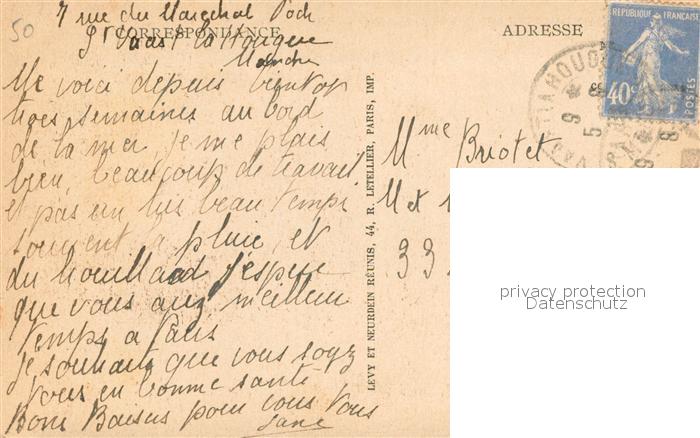 7 rue du Marechal Foch
St Vaast la Hougue
Manche
50
CORRESPONDANCE
ADRESSE
Me voici depuis bientot
trois semaines au bord
de la mer, je me plais
bien, beaucoup de travail
et pas un tres beau temps
souvent la pluie et
du brouillard j'espere
que vous avez meilleur
temps a Paris
je souhaite que vous soyez
tous en bonne santé
Bons Baisers pour vous tous
Jane
LEVY ET NEURDEIN RÉUNIS, 44, R. LETELLIER, PARIS, IMP.
REPUBLIQUE FRANÇAISE
40c
POSTES
LA HOUGUE
Mme Briotet
M et
33
privacy protection
Datenschutz